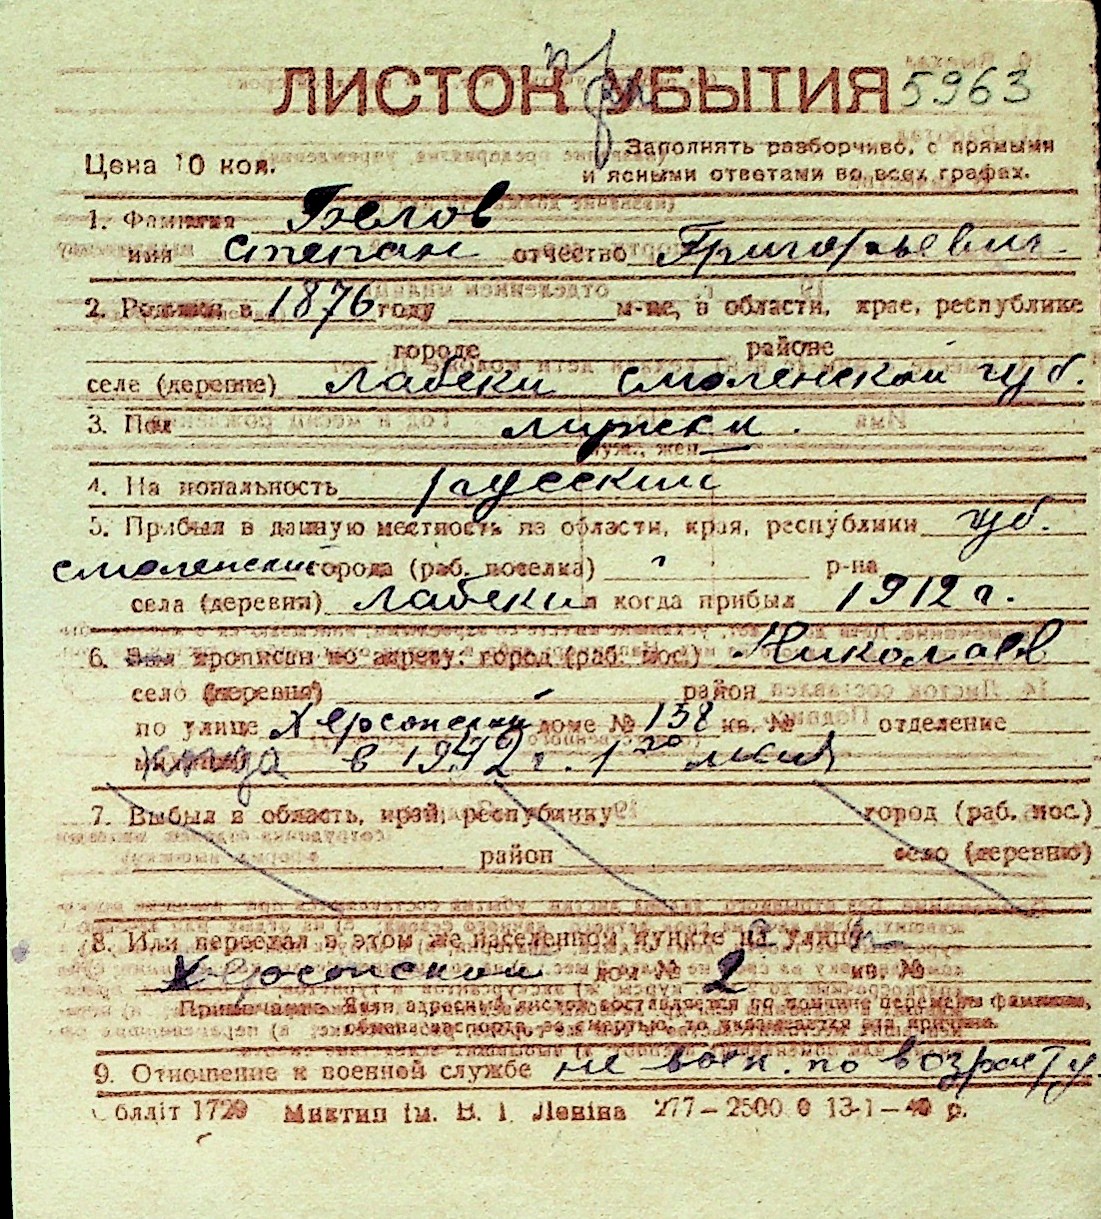 ЛИСТОК УБЫТИЯ 5963
Цена 10 коп.
Заполнять разборчиво, с прямыми
и ясными ответами во всех графах.
1. Фамилия Белов
имя Степан отчество Григорьевич
2. Родился в 1876 году м-це, в области, крае, республике
городе районе
селе (деревне) Лабеки Смоленской губ.
3. Пол мужски.
муж., жен.
4. Национальность русский
5. Прибыл в данную местность из области, края, республики губ.
Смоленский города (раб. поселка) р-на
села (деревни) Лабеки и когда прибыл 1912 г.
6. Был прописан по адресу: город (раб. пос.) Николаев
село (деревня) район
по улице Херсонский доме № 158 кв. № отделение
когда в 1942 г. 1го мая
7. Выбыл в область, край, республику город (раб. пос.)
район село (деревню)
8. Или переехал в этом же населенном пункте на улицу
Херсонский дом № 2 кв. №
Примечание. Если адресный листок составляется по причине перемены фамилии,
обмена паспорта, за смертью, то указывается эта причина.
9. Отношение к военной службе не воен. по возрасту.
Облліт 1729 Миктип ім. В. І. Леніна 277—2500 0 13-1—40 р.